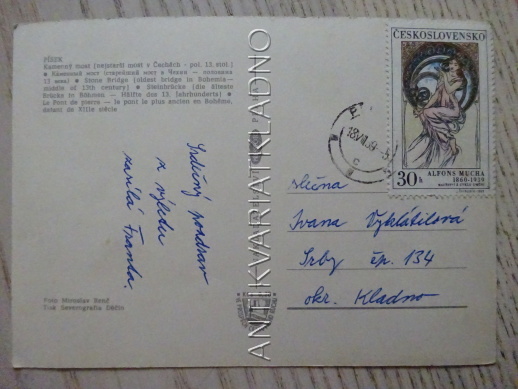 PÍSEK
Kamenný most (nejstarší most v Čechách - pol. 13. stol.)
● Каменный мост (старейший мост в Чехии — половина
13 века) ● Stone Bridge (oldest bridge in Bohemia—
middle of 13th century) ● Steinbrücke (die älteste
Brücke in Böhmen — Hälfte des 13. Jahrhunderts) ●
Le Pont de pierre — le pont le plus ancien en Bohême,
datant du XIIIe siècle
Srdečný pozdrav
z výletu
zasílá Franta.
Foto Miroslav
Tisk Severografia Děčín
ANTIKVARIATKLADNO
ČESKOSLOVENSKO
30h
ALFONS MUCHA
1860-1939
slečna
Ivana Vyklátilová
Srby čp. 134
okr. Kladno